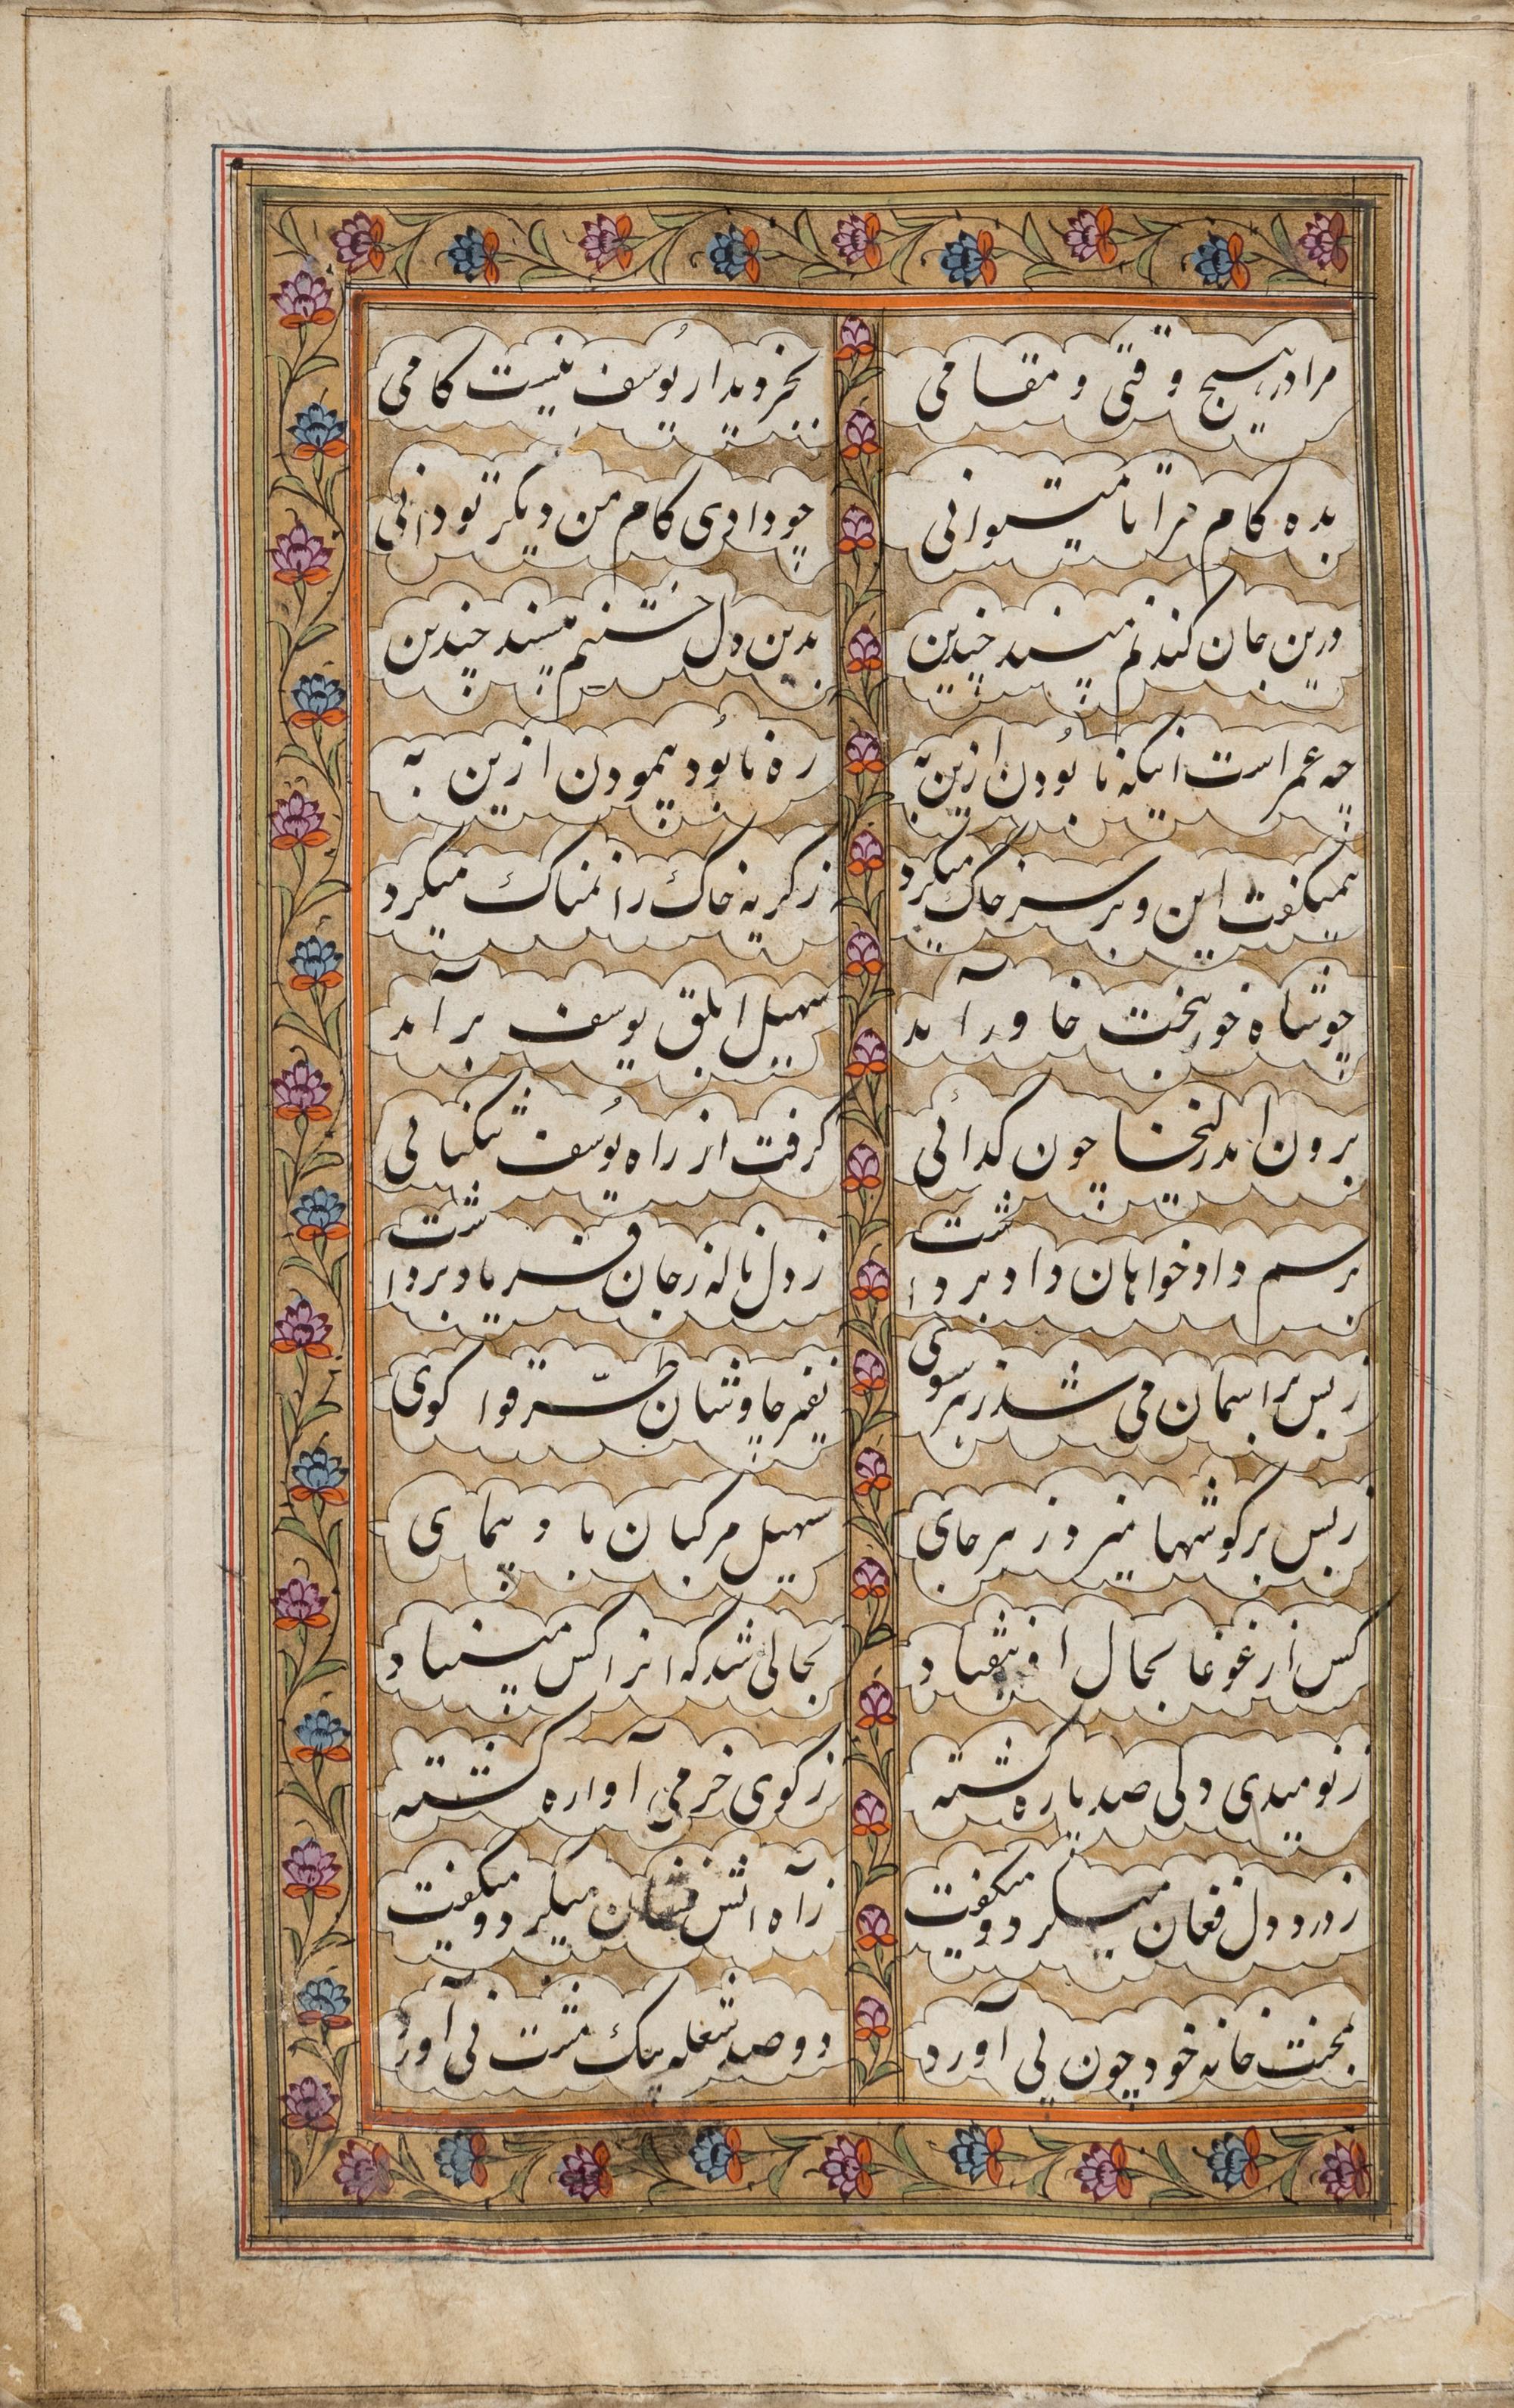 مرا در هیچ وقتی و مقامی بخر دیدار یوسف نیست کامی
بده کام مرا تا میتوانی چو دادی کام من دیگر تو دانی
درین جان کندنم مپسند چندین بدین دل خستنیم مپسند چندین
چه عمر است اینکه نابودن ازین به ره نابود پیمودن ازین به
همیگفت این و بر سر خاک میکرد ز گریه خاک را نمناک میکرد
چو شاه خور بتخت خاور آمد سهیل ابلق یوسف برآمد
برون آمد زلیخا چون گدائی گرفت از راه یوسف تنگنائی
برسم دادخواهان داد برداشت ز دل ناله ز جان فریاد برداشت
ز بس بر آسمان می شد ز هر سوی نفیر چاوشان طرّقوا گوی
ز بس بر گوشها میزد ز هر جای سهیل مرکبان باد پیمای
کس از غوغا بحال او نیفتاد بحالی شد که او را کس مبیناد
ز نومیدی دلی صد پاره گشته ز کوی خرمی آواره گشته
ز درد دل فغان میکرد و میگفت ز آه آتش فشان میکرد و میگفت
بمحنت خانه خود چون پی آورد دو صد شعله بیک مشت نی آورد